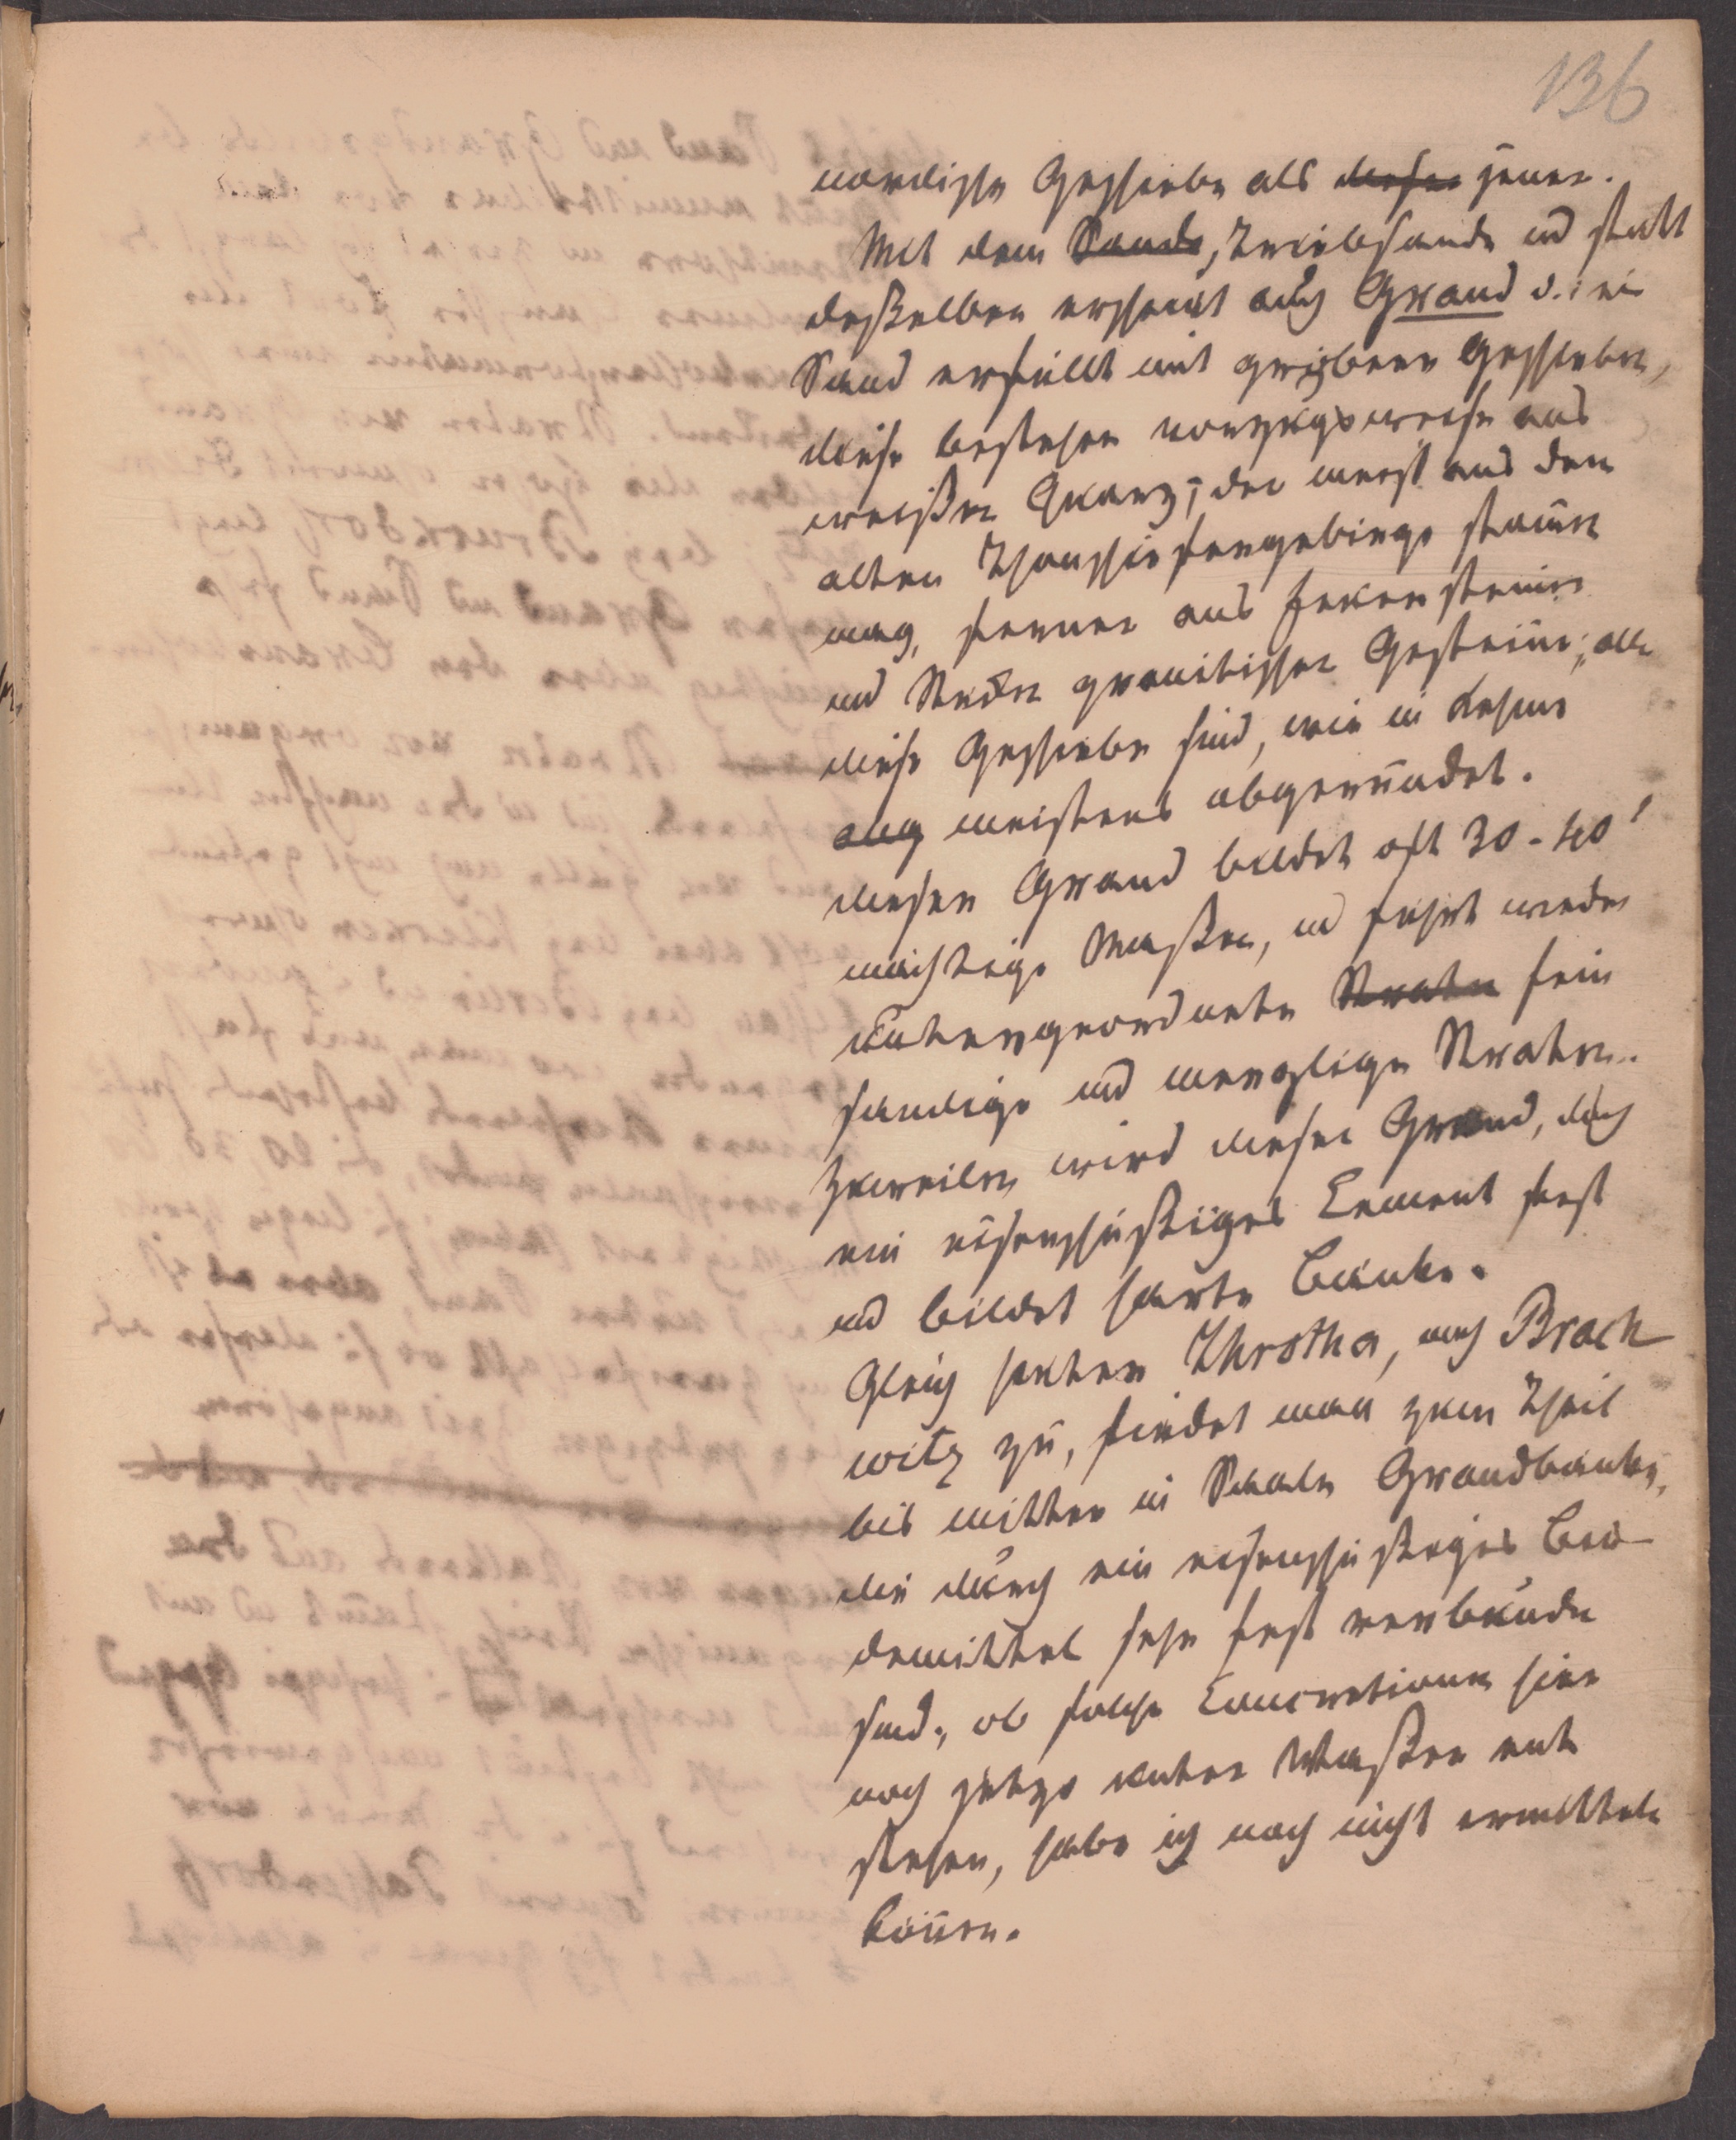 136
nordische Geschiebe als dieser jener.
Mit dem Sande, Triebsande und statt
deßelben erscheint auch Grand d. i ein
Sand erfüllt mit gröbern Geschieben,
diese bestehen vorzugsweise aus
weißen Quarz, der meist aus dem
alten Thonschiefergebirge stamen
mag, ferner aus Feuersteinen
und Stücken granitischer Gesteine; alle
diese Geschiebe sind, wie im Lehme
auch meistens abgerundet.
dieser Grand bildet oft 30-40'
mächtige Maßen, und führt wieder
untergeordnete Straten fein
sandige und mergelige Straten.
Zuweilen wird dieser Grand, durch
ein eisenschüßiges Cement fest
und bildet harte Bänke.
Gleich hinter Throtha, nach Brach
witz zu, findet man zum Theil
bis mitten in Saale Grandbänke,
die durch ein eisenschüßiges Bin
demittel sehr fest verbunden
sind, ob solche Concretionen hier
noch jetzo unter Waßer ent
stehen, habe ich noch nicht ermitteln
können.